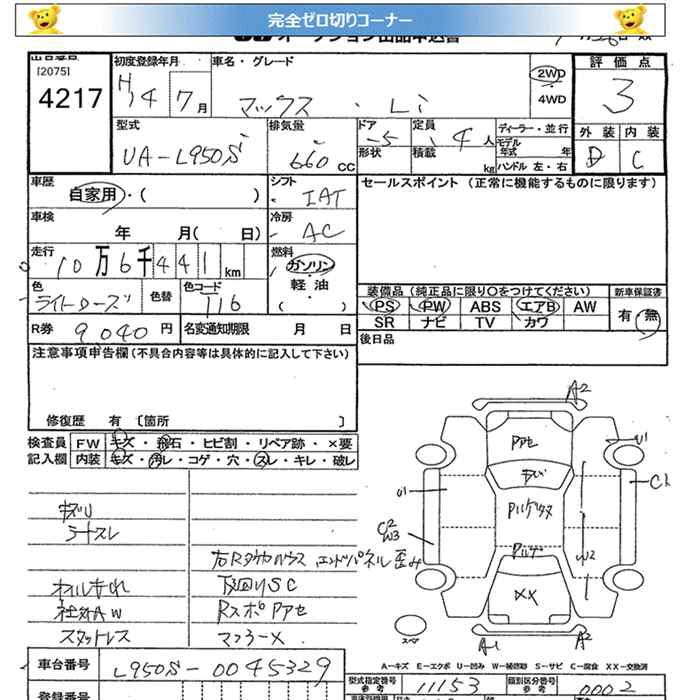 完全ゼロ切りコーナー
[2075]
4217
初度登録年月
H14 7月
車名・グレード
マックス・Li
2WD
4WD
評価点
3
型式
UA-L950S
排気量
660 CC
ドア
5
形状
定員
4人
積載
kg
ディーラー・並行
モデル年式 年
ハンドル 左・右
外装 内装
D C
車歴
自家用・( )
シフト
IAT
セールスポイント (正常に機能するものに限ります)
車検
年 月( 日)
冷房
AC
走行
10万6千441km
燃料
ガソリン
軽・油
( )
色
ライトローズ
色替
色コード
T16
装備品(純正品に限り○をつけてください)
新車保証書
PS PW ABS エアB AW
SR ナビ TV カワ
有・無
R券 9,040円
名変通知期限 月 日
後日品
注意事項申告欄(不具合内容等は具体的に記入して下さい)
修復歴 有 [箇所 ]
検査員 FW キズ・飛石・ヒビ割・リペア跡・×要
記入欄 内装 キズ・汚レ・コゲ・穴・スレ・キレ・破レ
シートスレ
社外AW
スタッドレス
下廻りSC
RスポPアセ
マフラーX
エンドパネル歪み
A2
Pアセ
U1
U1
C1
C2
W3
W2
XX
スペア
A1
A2
A-キズ E-エクボ U-凹み W-補修跡 S-サビ C-腐食 XX-交換済
車台番号 L950S-0045329
型式指定番号 参考 11153
類別区分番号 参考 0002
登録番号